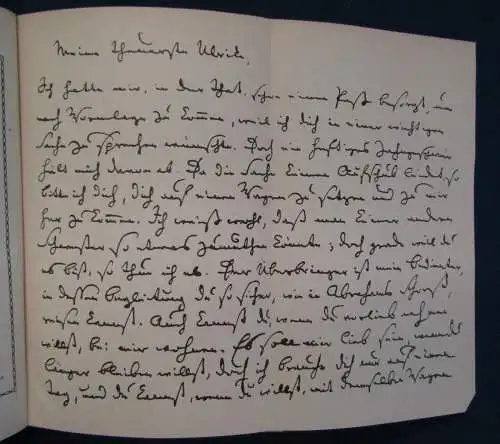 Meine theuerste Ulrike,
Ich hatte mir, in der That, schon einen Paß besorgt, um
nach Wormlage zu komme, weil ich dich in einer wichtigen
Sache zu sprechen wünschte. Doch ein heftiges
hält mich davon ab. Da die Sache keinen Aufschub leidet, so
bitt ich dich, dich auf einen Wagen zu setzen und zu mir
her zu kommen. Ich weiß wohl, daß man keiner andern
Schwester so etwas zumuthen könnte; doch grade weil du
es bist, so thue ich es. Der Überbringer ist mein Bedienter,
in dessen Begleitung du so sicher, wie in Abrahams Schoß,
reisen kannst. Auch kannst du, wenn du vorlieb nehmen
willst, bei mir wohnen. Es soll mir lieb sein, wenn du
länger bleiben willst, doch ich brauche dich nur auf einen
Tag, und du kannst, wenn du willst, mit demselben Wagen